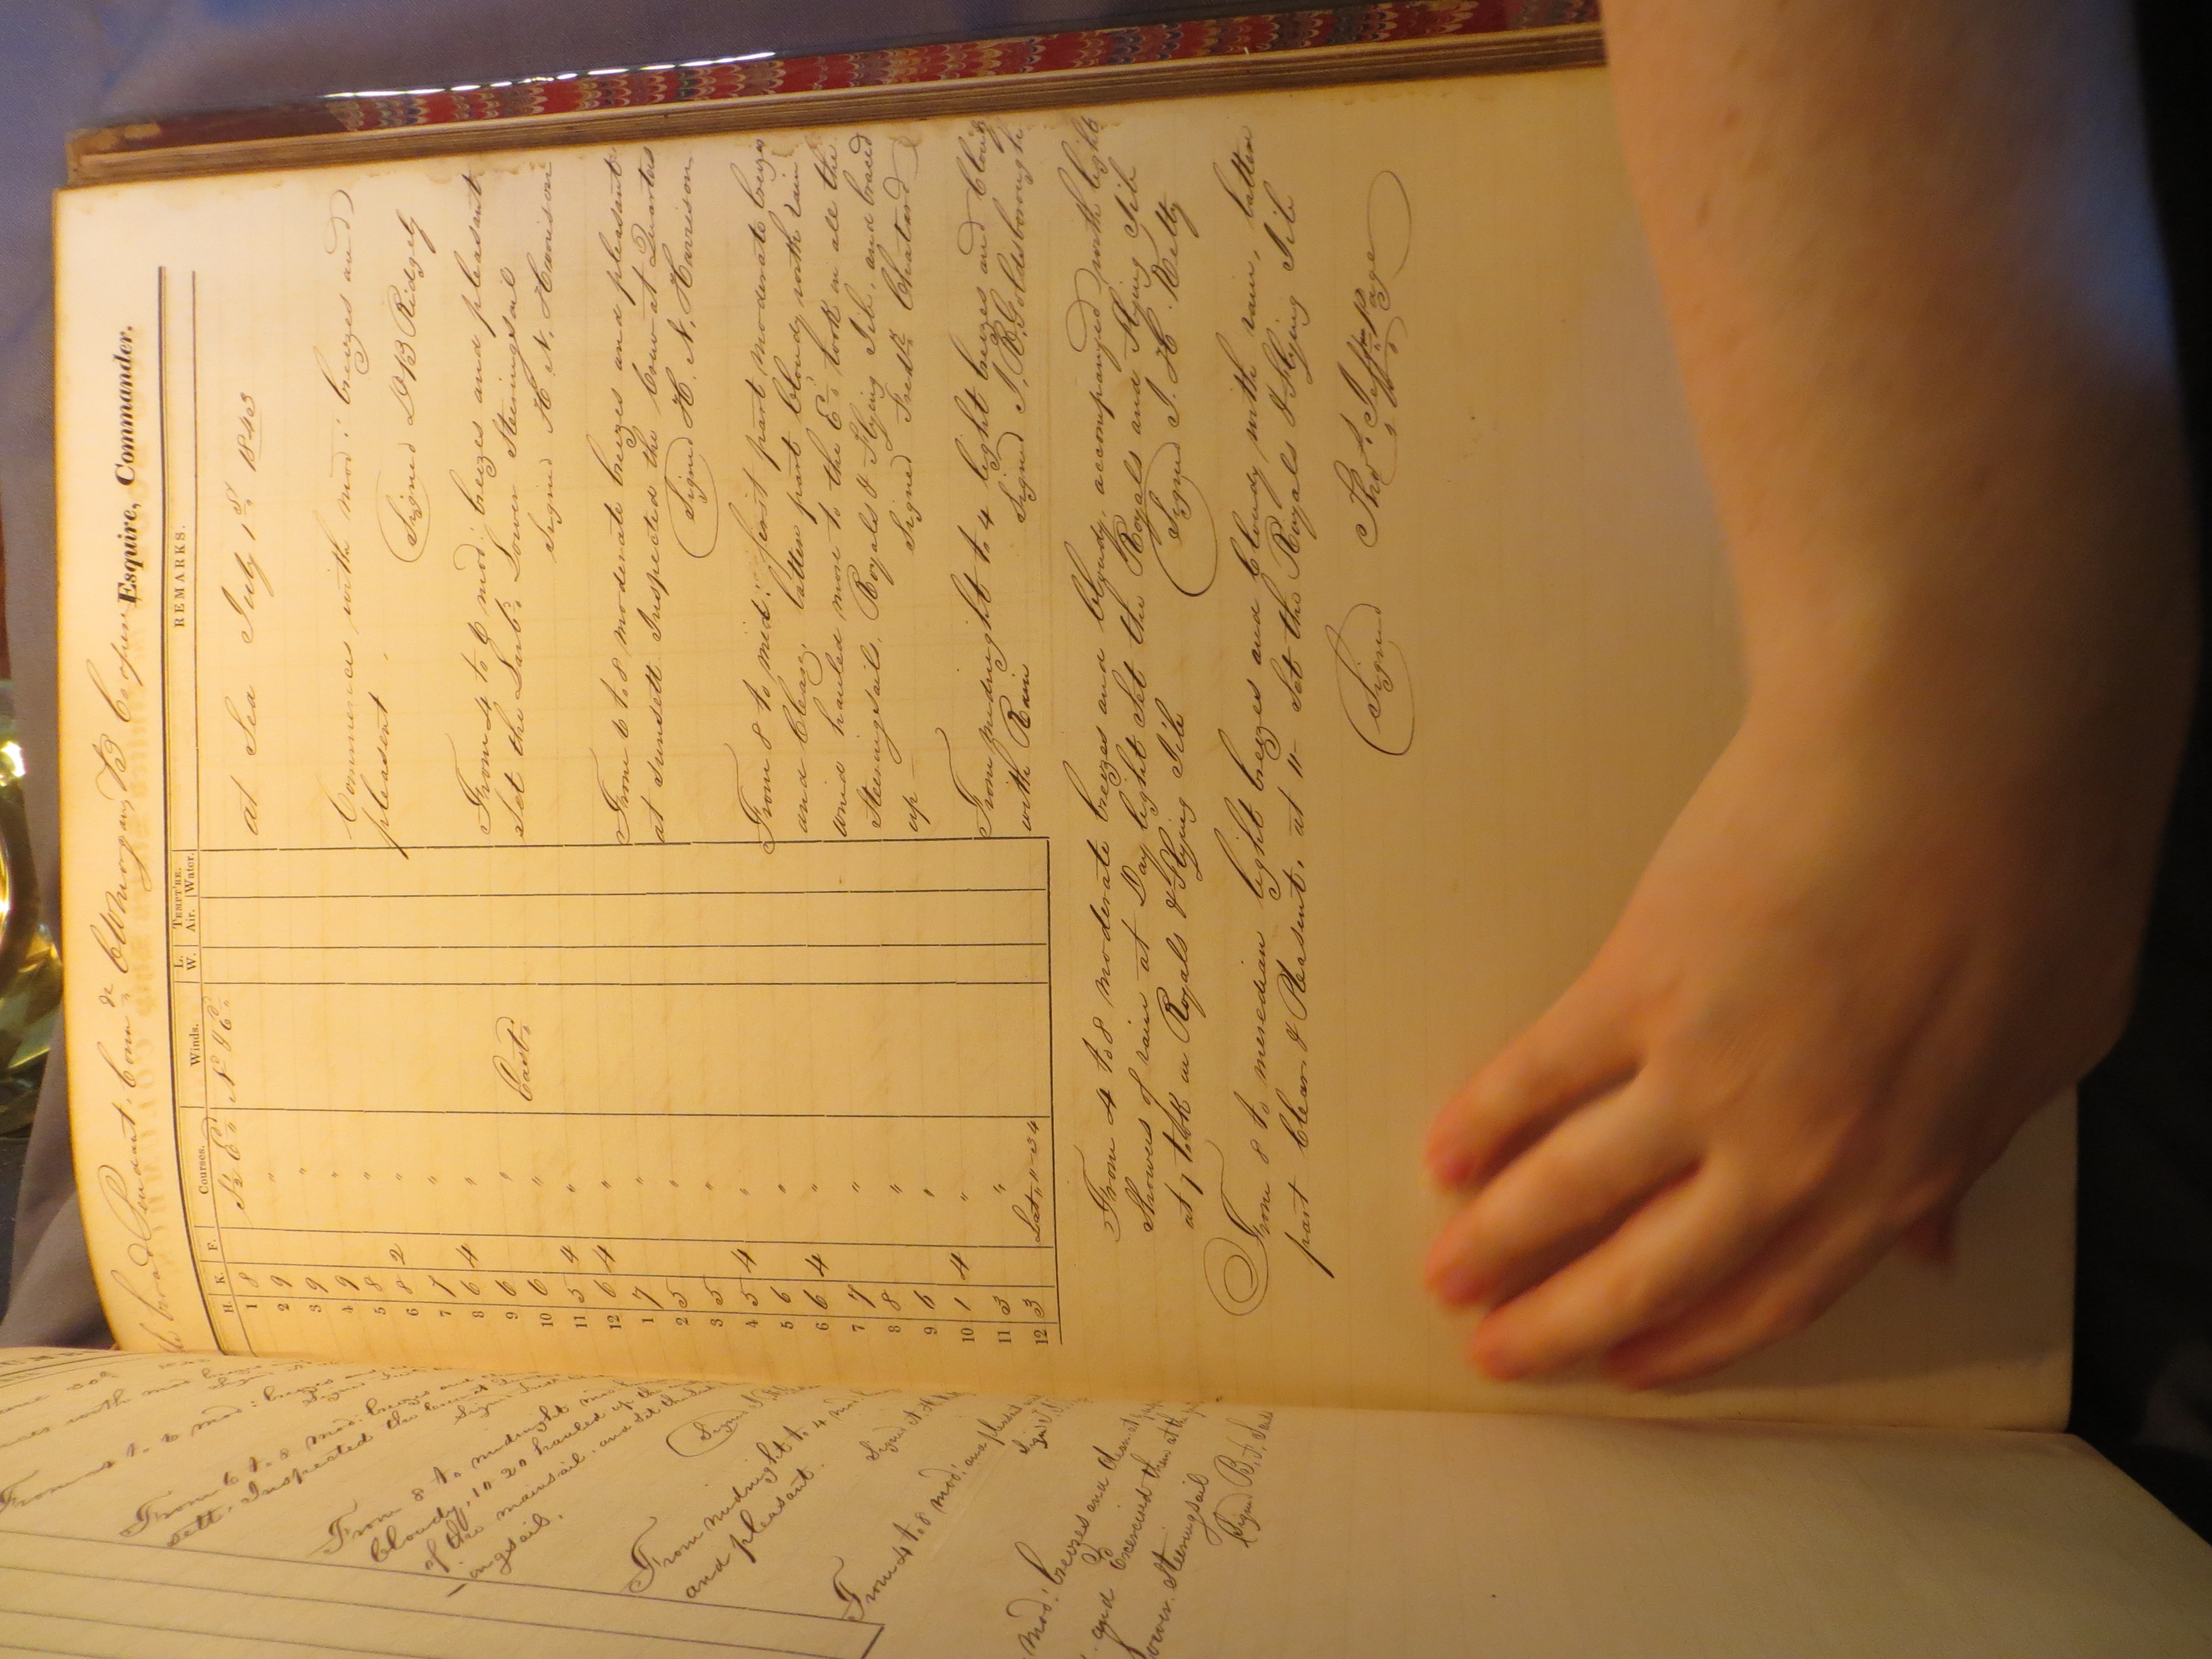 broad Pendant, Com'dr C W Morgan, B Cooper Esquire, Commander.
H. K. F. Courses. Winds. L. W. TEMPT'RE. Air. Water. REMARKS.
1 8 N. & E.
2 9 "
3 9 "
4 9 "
5 8 "
6 8 2 "
7 7 "
8 6 4 "
9 6 " East
10 6 "
11 5 4 "
12 6 4 "
1 7 "
2 5 "
3 5 "
4 5 4 "
5 6 "
6 6 4 "
7 7 "
8 8 "
9 6 "
10 1 4 "
11 3 "
12 3
at Sea July 1st 1843
Commences with mod: breezes and
pleasant
Signed D B Ridgely
From 4 to 6 mod: breezes and pleasant
Set the Larb. Lower Steeringsail
Signed H. N. Harrison
From 6 to 8 moderate breezes and pleasant
at sunsett Inspected the Crew at Quarters
Signed H. N. Harrison
From 8 to mid: first part moderate breezes
and Clear, latter part cloudy with rain
wind hauled more to the E. took in all the
Steeringsails, Royals & Flying Jib, and braced
up —
Signed Fredk Chatard
From midnight to 4 light breezes and Cloudy
with Rain
Signed J. R. Goldsborough
From 4 to 8 moderate breezes and cloudy, accompanied with light
Showers of rain at Day light Set the Royals and Flying Jib
at 7 took in Royals & Flying Jib
Signed J. H. Kelly
From 8 to meredian light breezes and Cloudy with rain, latter
part Clear & Pleasent, at 11 Set the Royals & Flying Jib
Signed Thos. Jeffn Page
From 6 to 8 mod: breezes
sett. Inspected the
From 8 to midnight
Cloudy, 10-20 hauled up the
of the mainsail, and set the
ingsail.
From midnight to 4
and pleasant.
From 4 to 8 mod: and pleasant
mod: breezes and clear
and Exercised them at the
Lower Steeringsail
Signed B. F.